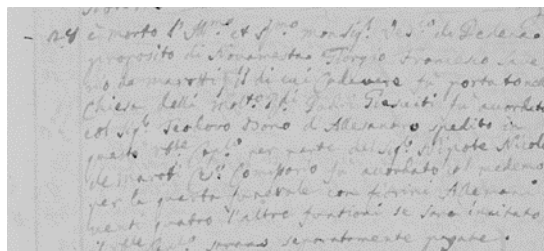 - 28 è morto l'Ill.mo et R.mo monsig.r Vesc.o di Pedena
proposito di Novamesta Giorgio Francesco Save
rio de marotti il di cui Cadavere fù portato nella
Chiesa delli molto R.di Padri Gesuiti fù accordato
col Sig.r Teodoro Bono d'Alesandro spedito in
questo per parte del Sig.r Nipote Nicolò
de Maroti fù accordato al medemo
per la quarta funerale con fiorini Alemani
venti quatro l'altre funtioni se sarà invitato
sarano separatamente pagate.